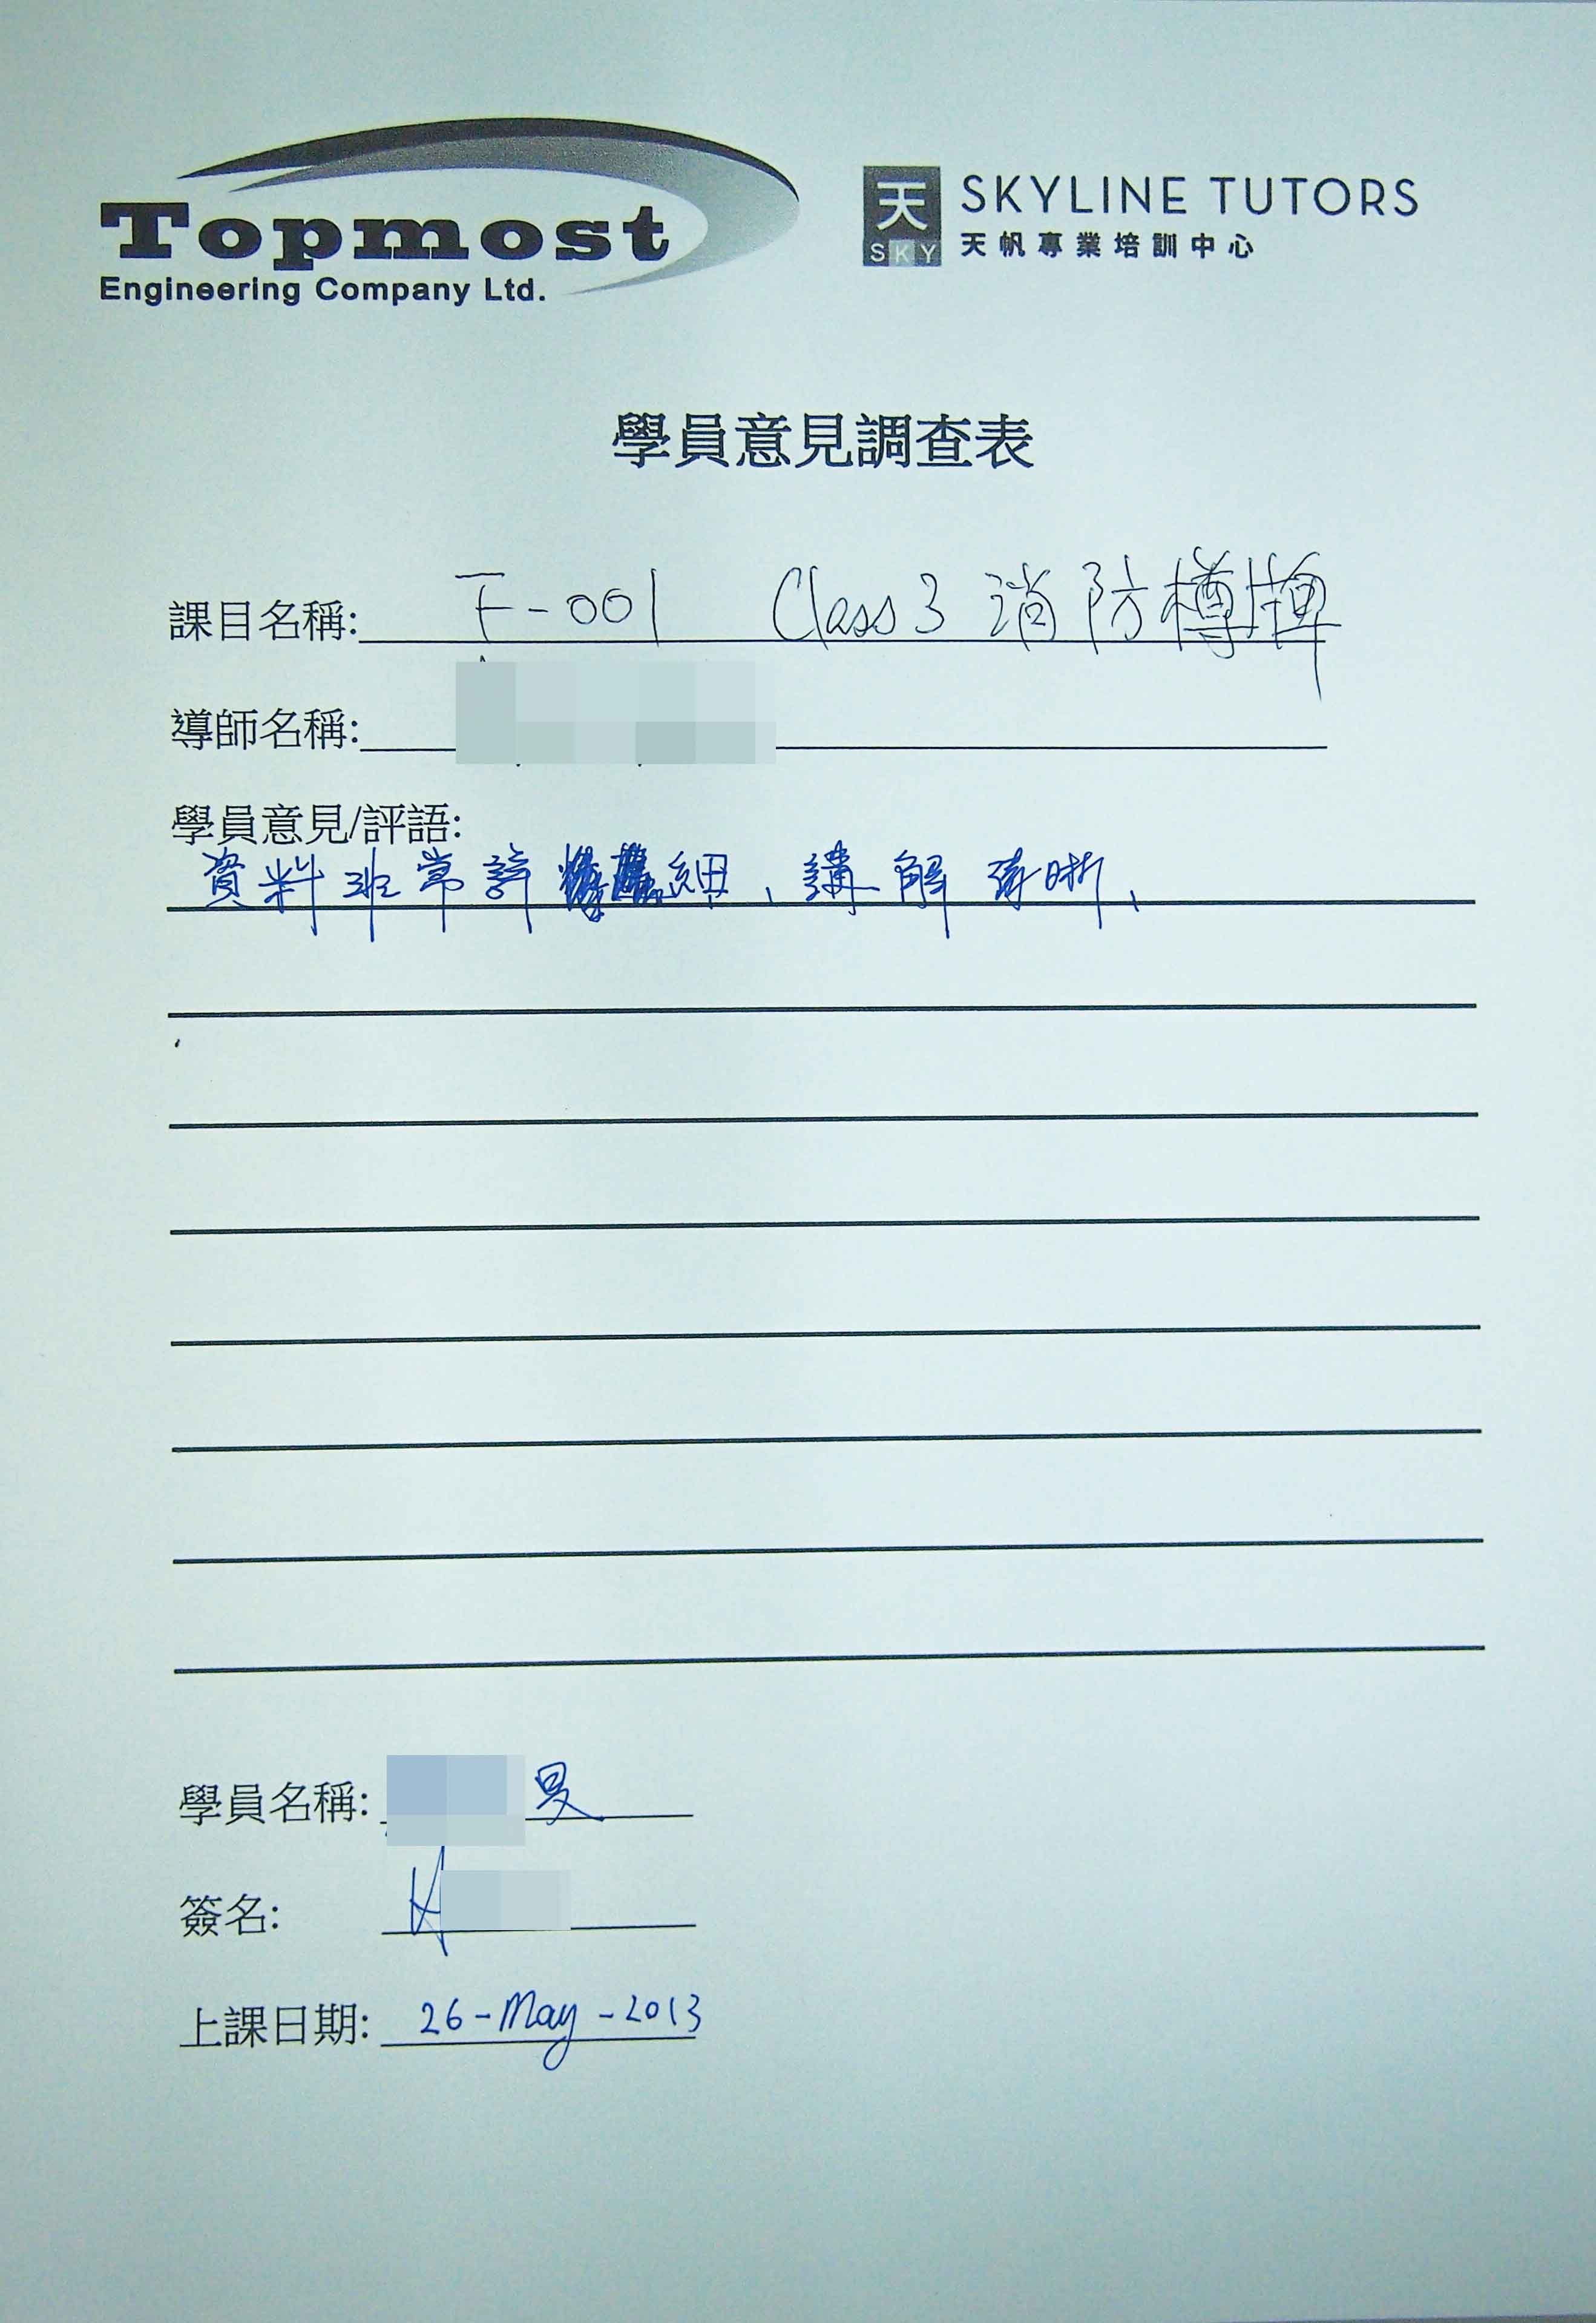 Topmost
Engineering Company Ltd.
天 SKY
SKYLINE TUTORS
天帆專業培訓中心
學員意見調查表
課目名稱: F-001 Class 3 消防樽牌
導師名稱:
學員意見/評語:
資料非常詳細、講解清晰、
學員名稱: 旻
簽名:
上課日期: 26-May-2013